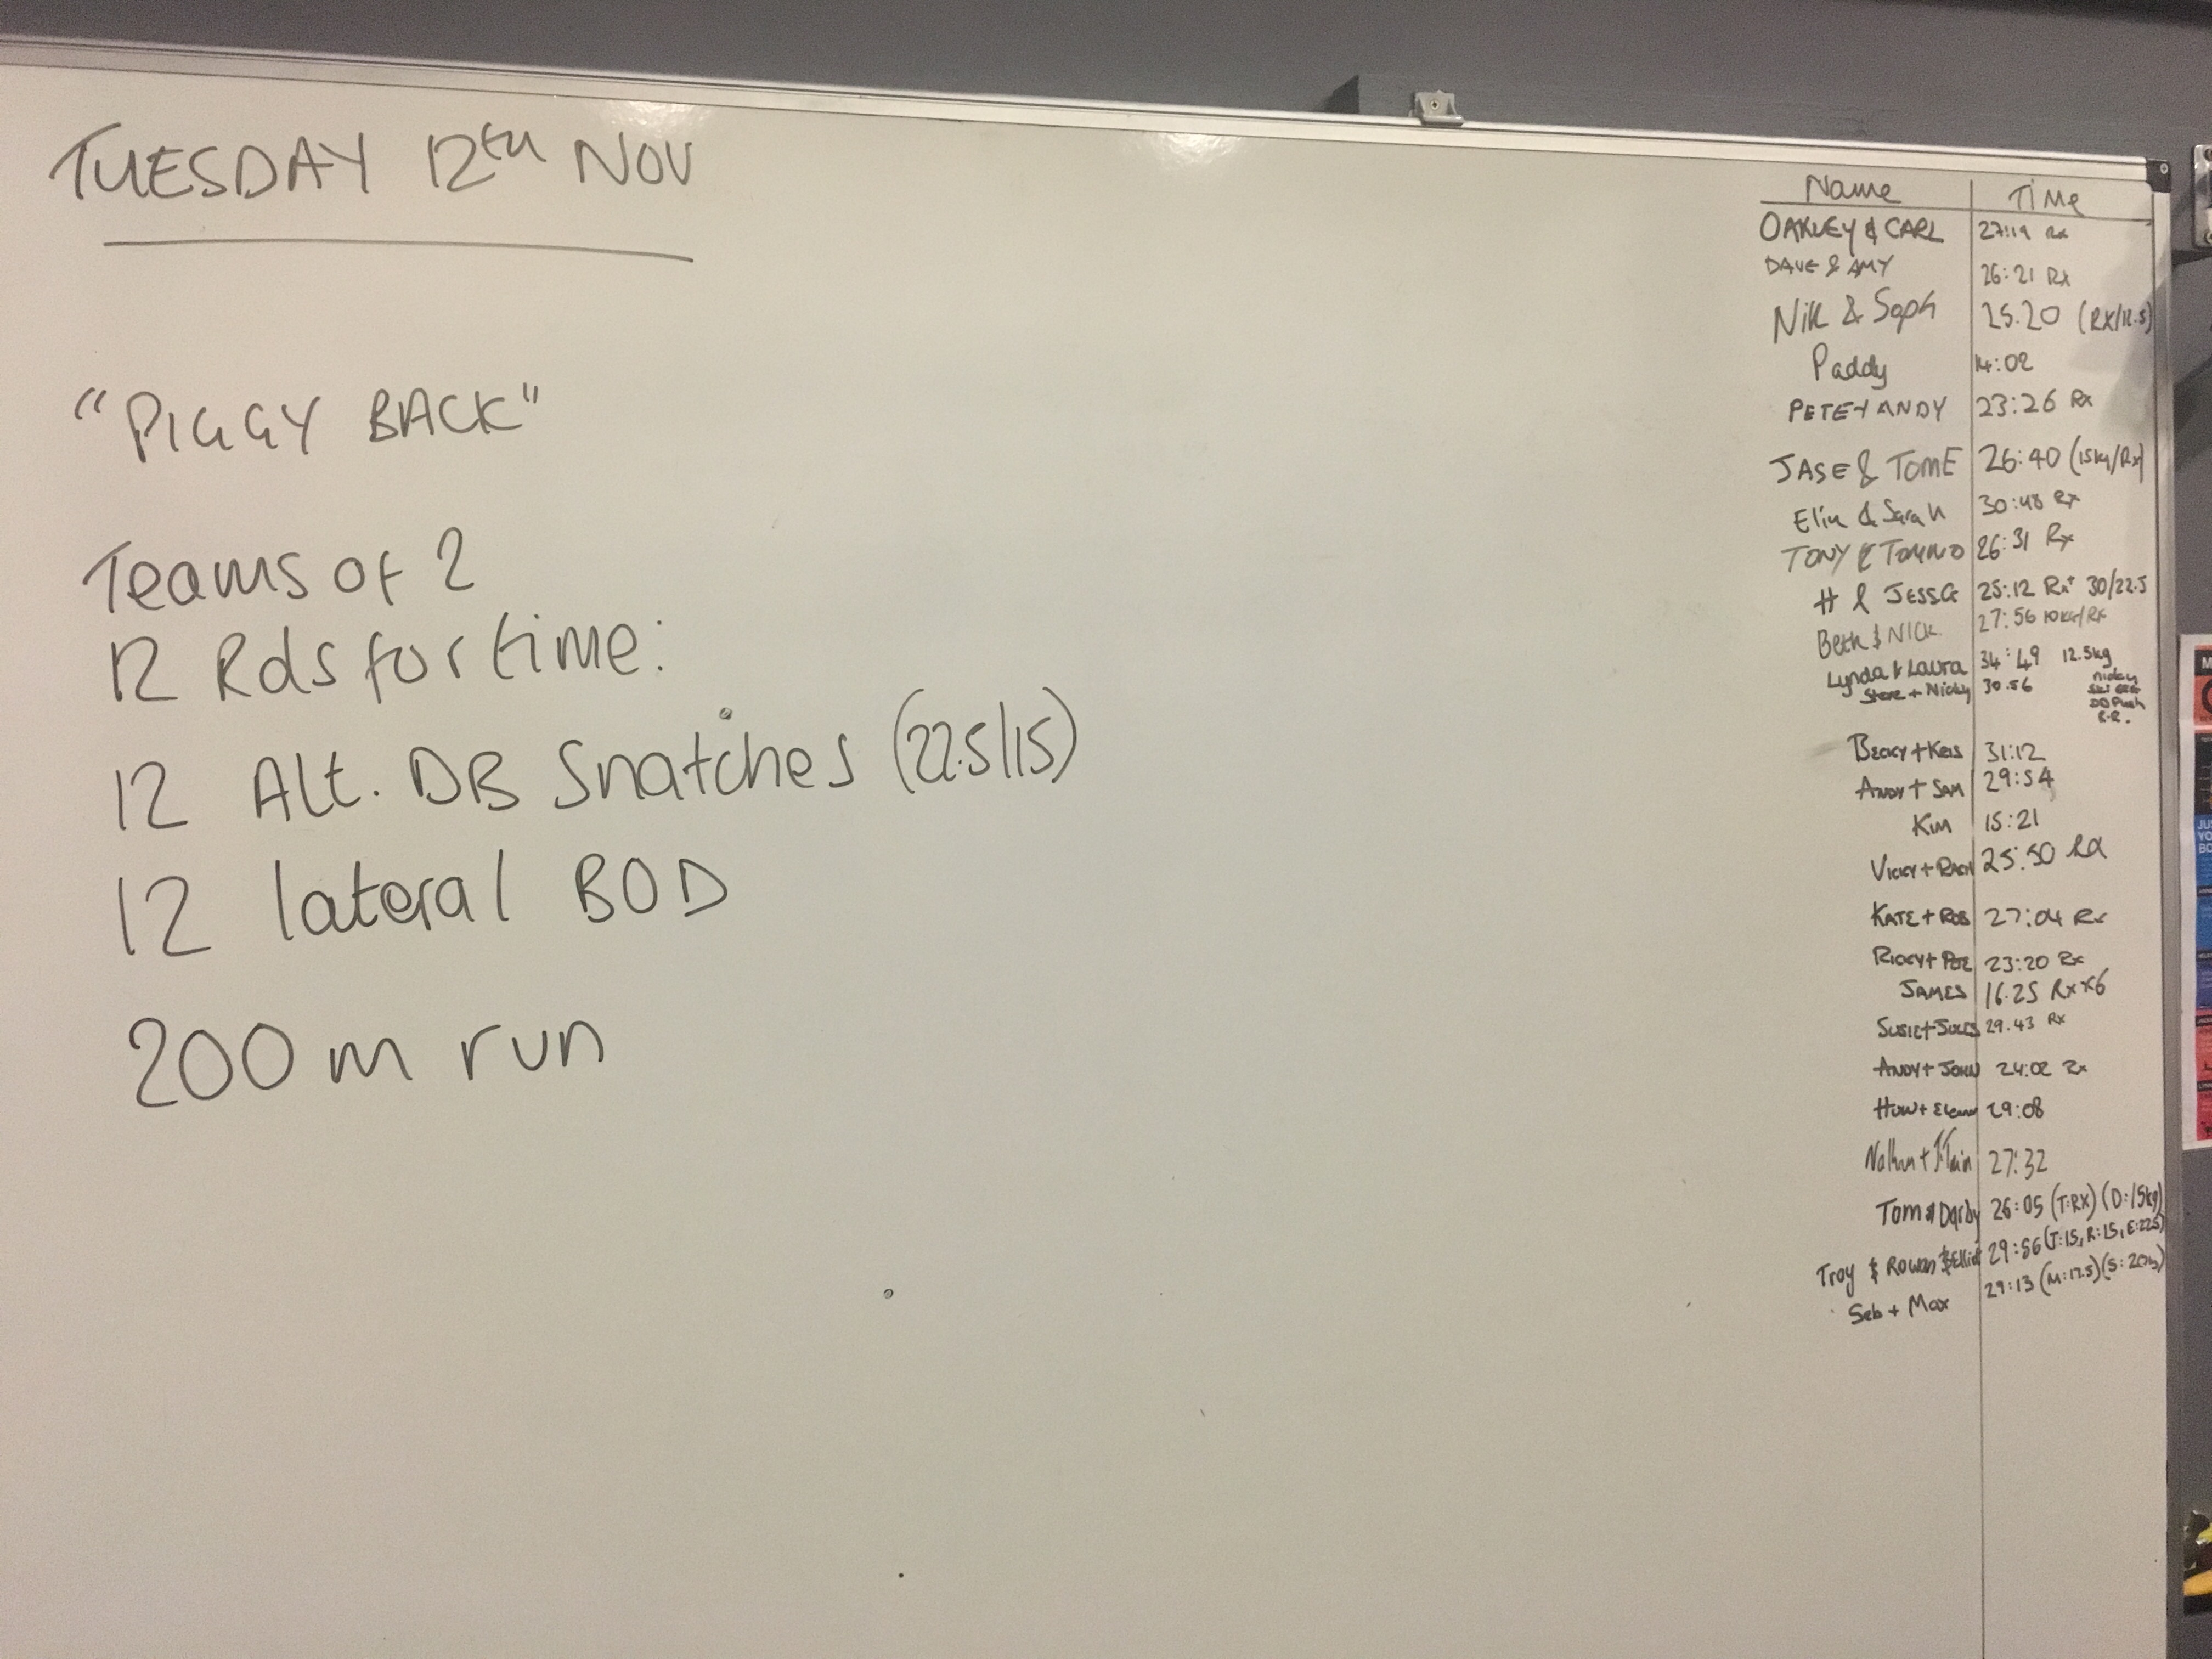 TUESDAY 12th NOV
"PIGGY BACK"
Teams of 2
12 Rds for time:
12 Alt. DB Snatches (22.5/15)
12 lateral BOD
200m run
Name Time
OAKLEY & CARL 27:19 Rx
DAVE & AMY 26:21 Rx
Nik & Soph 25.20 (RX/12.5)
Paddy 14:02
PETE + ANDY 23:26 Rx
JASE & TOME 26:40 (15kg/Rx)
Elin & Sarah 30:48 Rx
TONY & 26:31 Rx
H & JESSG 25:12 Rx+ 30/22.5
Beth & NICK 27:56 10KG/RX
Lynda & Laura 34:49 12.5kg
Steve + Nicky 30.56 nicky
DB Push
R.R.
BECKY + 31:12
ANDY + SAM 29:54
KIM 15:21
VICKY + 25:50 RX
KATE + ROB 27:04 Rx
RICKY + 23:20 Rx
JAMES 16.25 Rx x6
SUSIE + JULES 29.43 Rx
ANDY + JOHN 24:02 Rx
HUW + 29:08
Nathan + 27:32
Tom & Darby 26:05 (T:RX) (D:15kg)
Troy & Rowan & Elliot 29:56 (T:15, R:15, E:22.5)
Seb + Max 29:13 (M:17.5) (S:20kg)